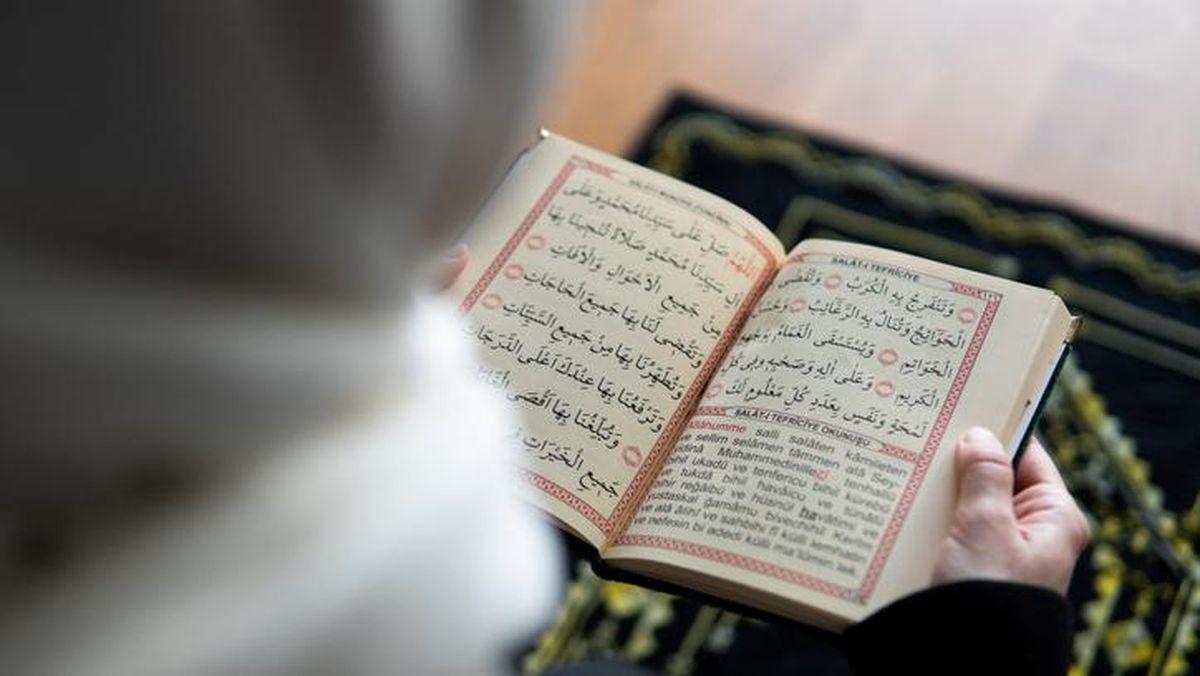 SALÂT-I TEFRİCİYE
وَتَنْفَرِجُ بِهِ الْكُرَبُ وَتُقْضٰى
الْحَوَائِجُ وَتُنَالُ بِهِ الرَّغَائِبُ وَحُسْنُ
الْخَوَاتِمِ وَيُسْتَسْقَى الْغَمَامُ بِوَجْهِهِ
الْكَرِيمِ وَعَلٰى اٰلِهِ وَصَحْبِهِ فِى كُلِّ
لَمْحَةٍ وَنَفَسٍ بِعَدَدِ كُلِّ مَعْلُومٍ لَكَ
SALÂT-I TEFRİCİYE OKUNUŞU
salli salâten kâmileten
ve sellim selâmen tâmmen alâ Sey-
Muhammedinillezî tenhallü
bihil ukadü ve tenfericu bihil kürebü
ve tukdâ bihil havâicu ve tünâlü
reğâibü ve hüsnül havâtimi ve
yustaskal ğamâmu bivechihil Kerîm
ve alâ âlihî ve sahbihî fî külli lemhatin
ve nefesin bi adedi külli ma'lûmin lek
اَللّٰهُمَّ صَلِّ عَلٰى سَيِّدِنَا مُحَمَّدٍ وَعَلٰى
اٰلِ سَيِّدِنَا مُحَمَّدٍ صَلَاةً تُنْجِينَا بِهَا
مِنْ جَمِيعِ الْاَحْوَالِ وَالْاٰفَاتِ
وَتَقْضِى لَنَا بِهَا جَمِيعَ الْحَاجَاتِ
وَتُطَهِّرُنَا بِهَا مِنْ جَمِيعِ السَّيِّئَاتِ
وَتَرْفَعُنَا بِهَا عِنْدَكَ اَعْلَى الدَّرَجَاتِ
وَتُبَلِّغُنَا بِهَا اَقْصَى
جَمِيعِ الْخَيْرَاتِ